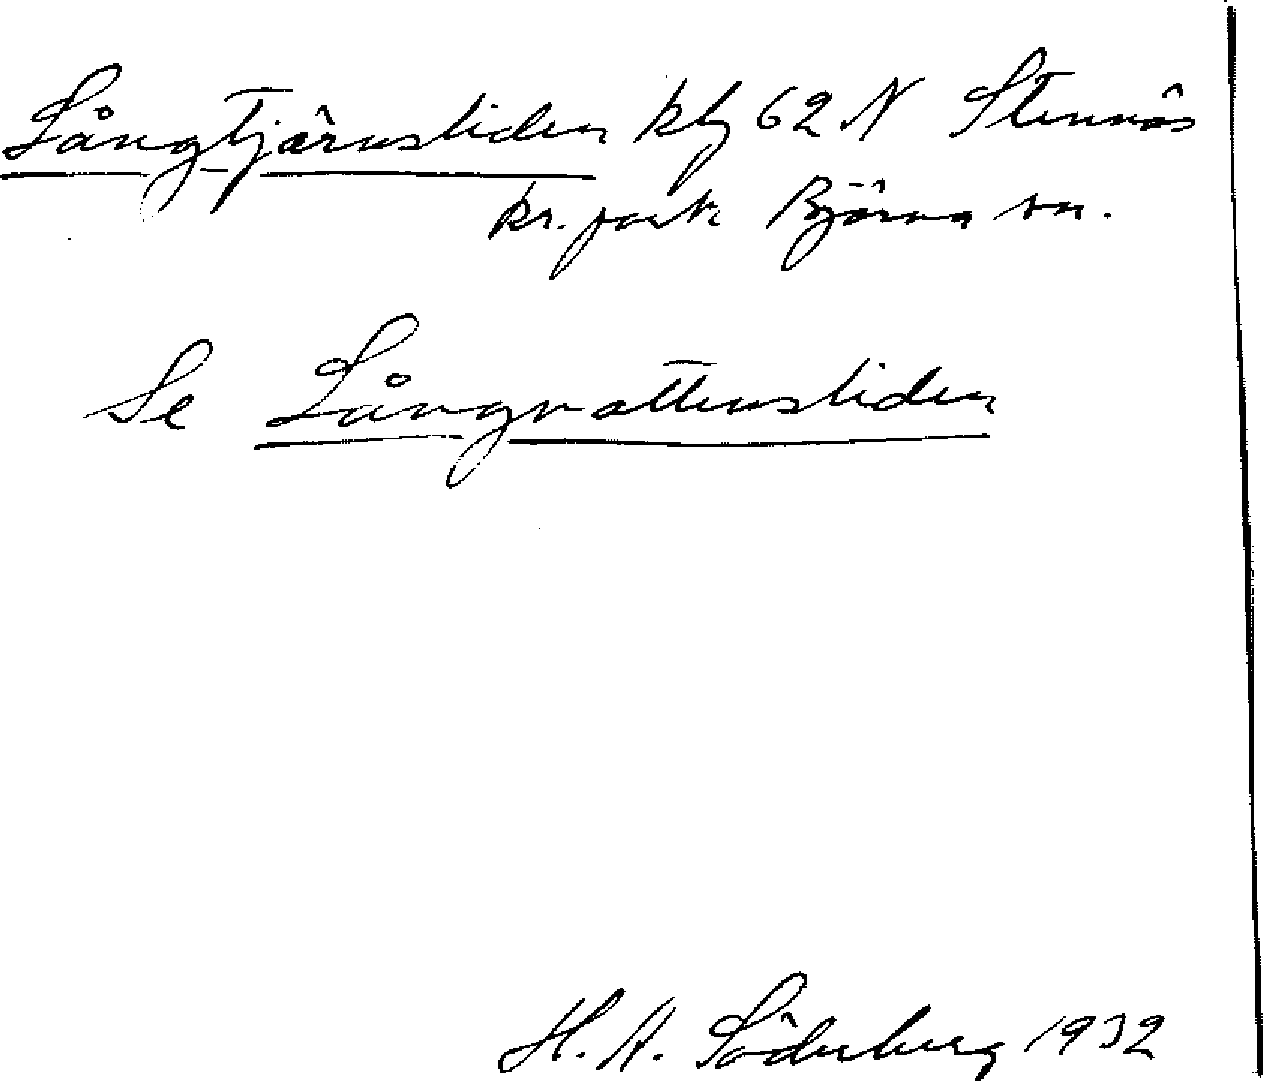 Långtjärnsliden kbg 62 N Stennäs
kr. park Björna sn.
Se Långvattensliden
H. A. Söderberg 1932